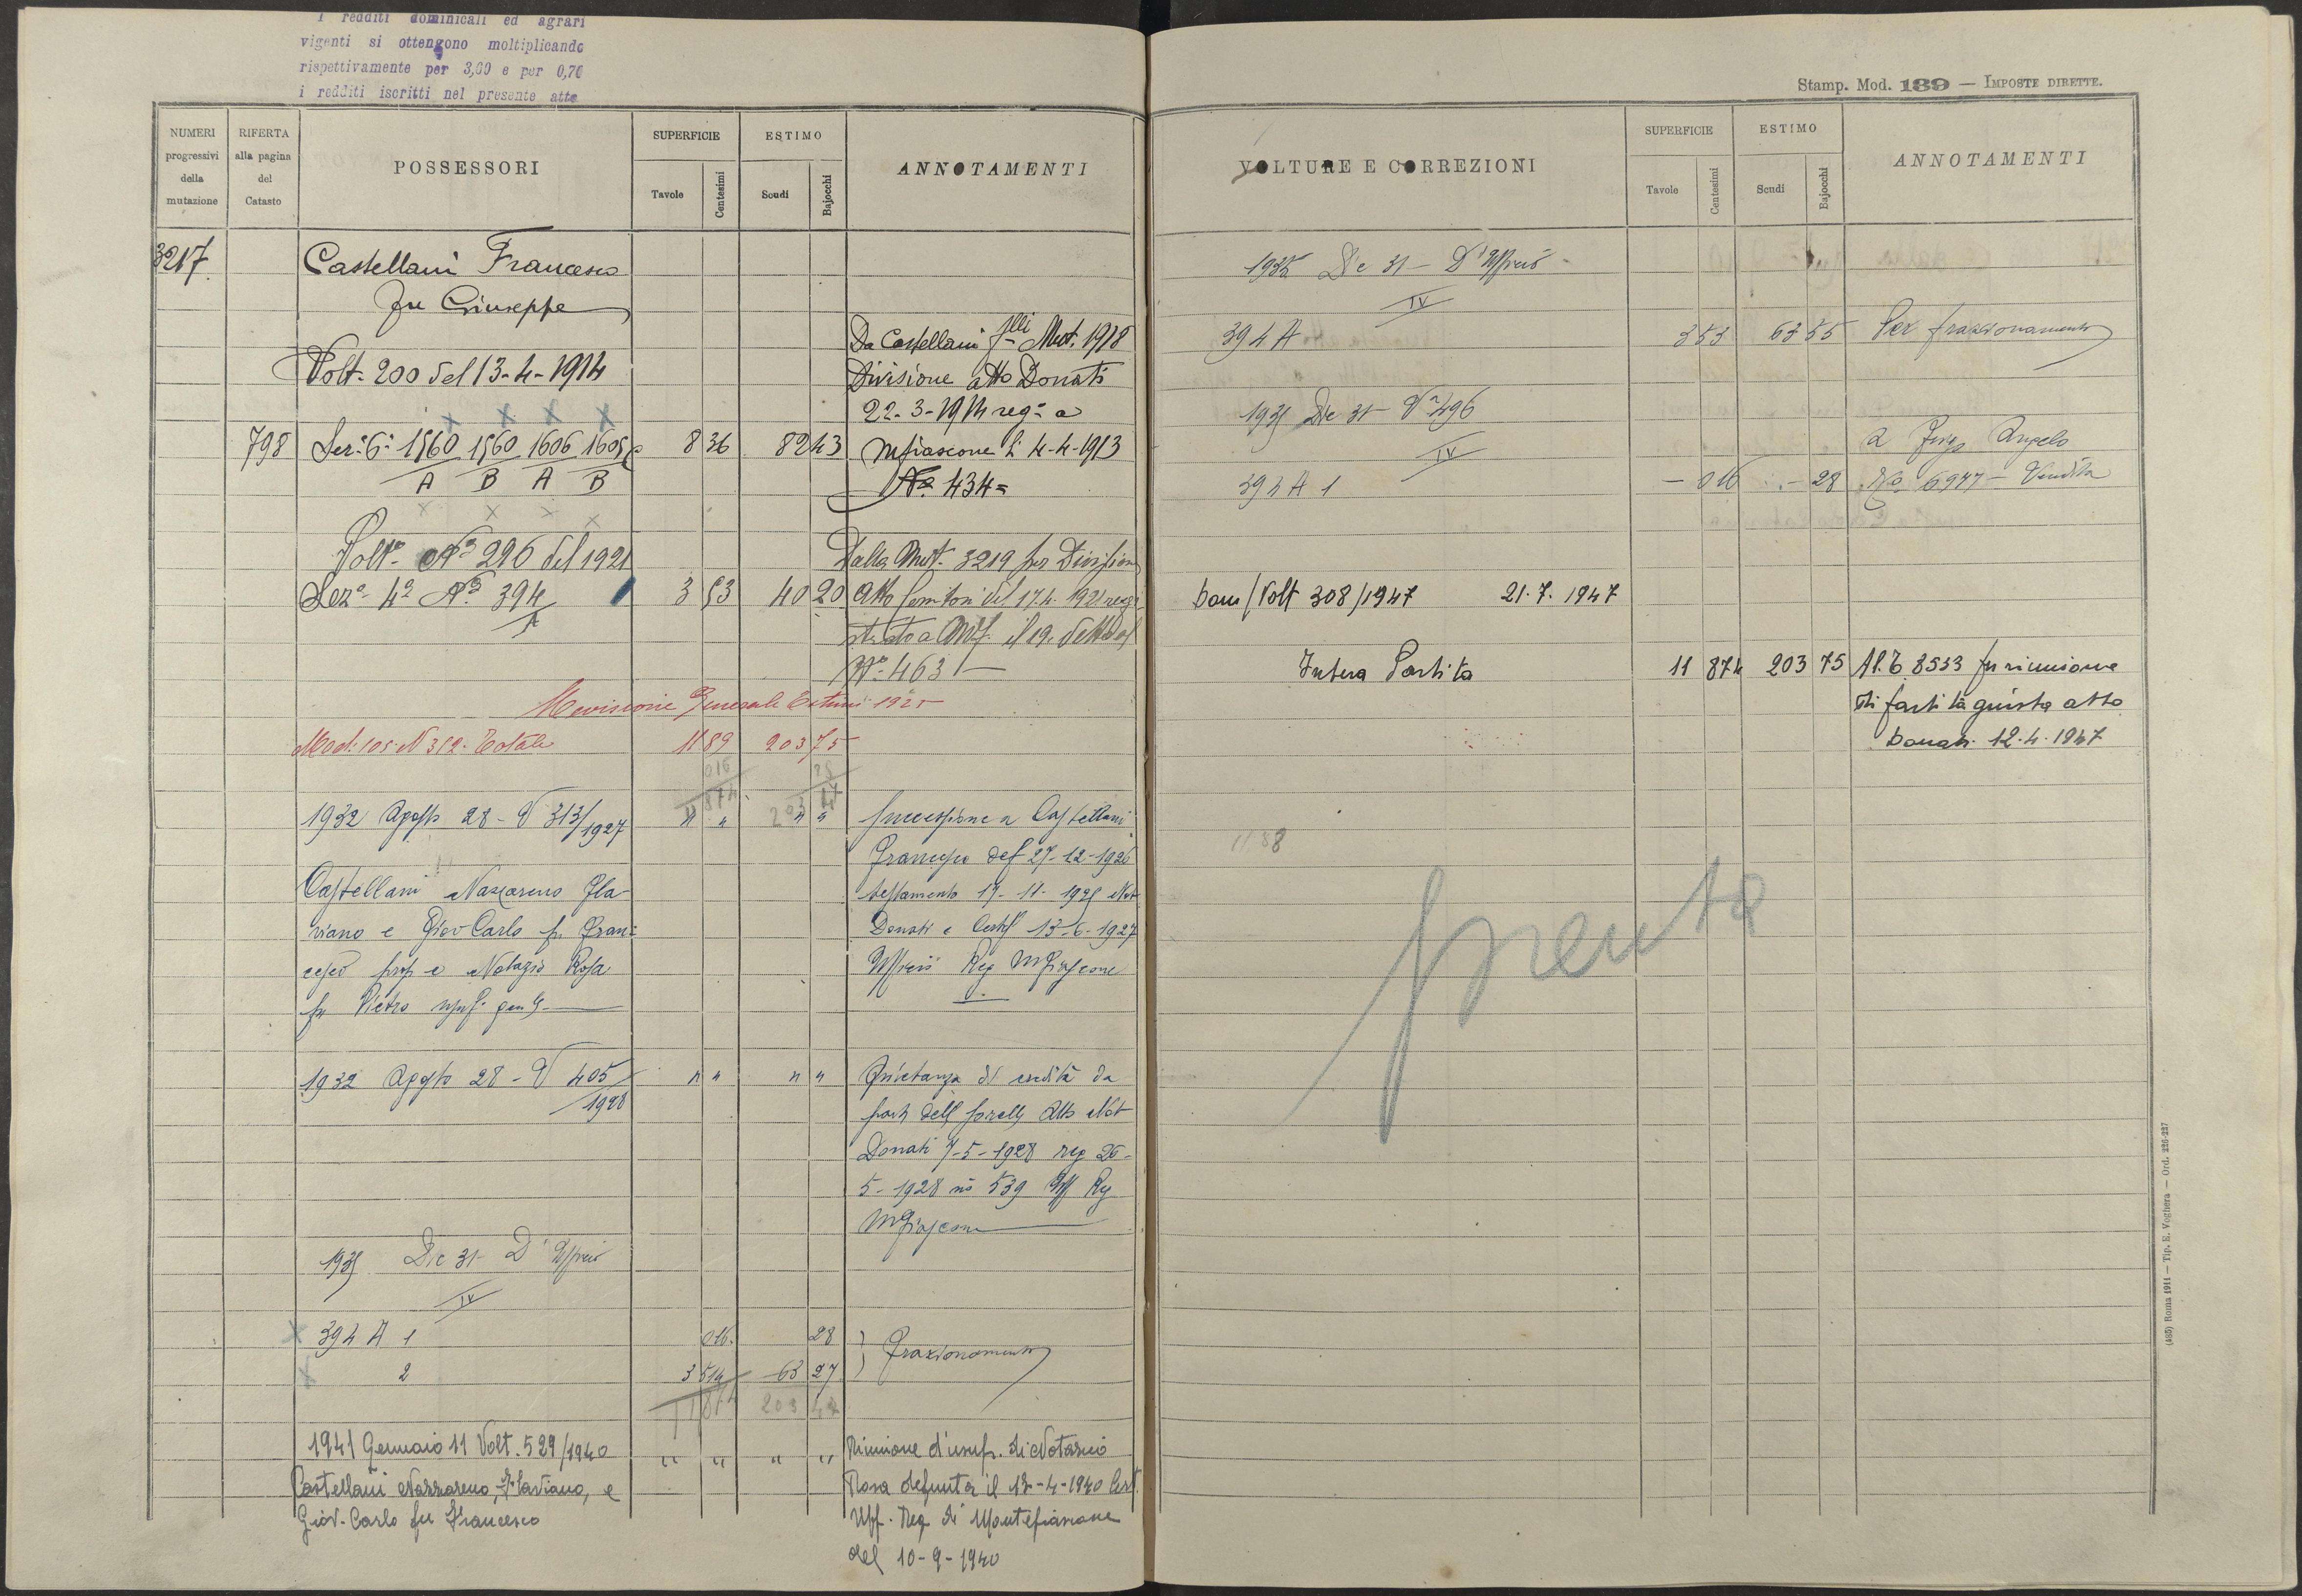 I redditi dominicali ed agrari
vigenti si ottengono moltiplicando
rispettivamente per 3,00 e per 0,70
i redditi iscritti nel presente atto
NUMERI progressivi della mutazione
RIFERTA alla pagina del Catasto
POSSESSORI
SUPERFICIE
Tavole
Centesimi
ESTIMO
Scudi
Bajocchi
ANNOTAMENTI
3217
Castellani Francesco
fu Giuseppe
Da Castellani f.lli Mut. 1918
Volt. 200 del 13-4-1914
Divisione atto Donati
22-3-1914 reg.
798 Sez. 6ª 1560 1560 1606 1605 8 36 82 43 Mfiascone li 4-4-1913
A B A B
Nº 434=
Volt. Nº 296 del 1921
Dalla Mut. 3219 per Divisione
Sez. 4ª Nº 394 3 53 40 20 Atto del 17.4.1921 regi
A
strato a Mf. il 19. detto al
Nº 463
Revisione Generale Estimi 1925
Mod. 105. N 312. Totale 11 89 203 75
016 28
11 874 203 47
1932 Agosto 28 - V 313/1927 " " " " Successione a Castellani
Francesco def 27-12-1926
Castellani Nazzareno Fla
testamento 17-11-1925 Not
viano e Giov Carlo fu Fran=
Donati e Certif 13-6-1927
cesco prop e Notazio Rosa
Ufficio Reg MFiascone
fu Pietro usuf.
1932 Agosto 28 - V 405/1928 " " " " Quietanza di eredità da
parte delle sorelle Atto Not
Donati 7-5-1928 reg 26-
5-1928 nº 539 Uff Reg
MFiascone
1935 Dic 31 - D'Ufficio
IV
394 A 1 016 28
2 3 514 63 27 Frazionamento
11 874 203 47
1941 Gennaio 11 Volt. 529/1940 " " " " Riunione d'usuf. di Notazio
Castellani Nazzareno, Flaviano, e
Rosa defunta il 13-4-1940 Cert.
Giov. Carlo fu Francesco
Uff. Reg di Montefiascone
del 10-9-1940
Stamp. Mod. 139 — IMPOSTE DIRETTE.
VOLTURE E CORREZIONI
SUPERFICIE
Tavole
Centesimi
ESTIMO
Scudi
Bajocchi
ANNOTAMENTI
1935 Dic 31 - D'Ufficio
IV
394 A 3 53 63 55 Per frazionamento
1935 Dic 31 - Vª 496
IV
a Angelo
394 A 1 - 016 - 28 Nº 6947 - Vendita
Dom/Volt 308/1947 21.7.1947
Intera Partita 11 874 203 75 Al. 8533 per riunione
di partita giusta atto
Donati 12.4.1947
11.88
spenta
(485) Roma 1911 — Tip. E. Voghera — Ord. 226-227